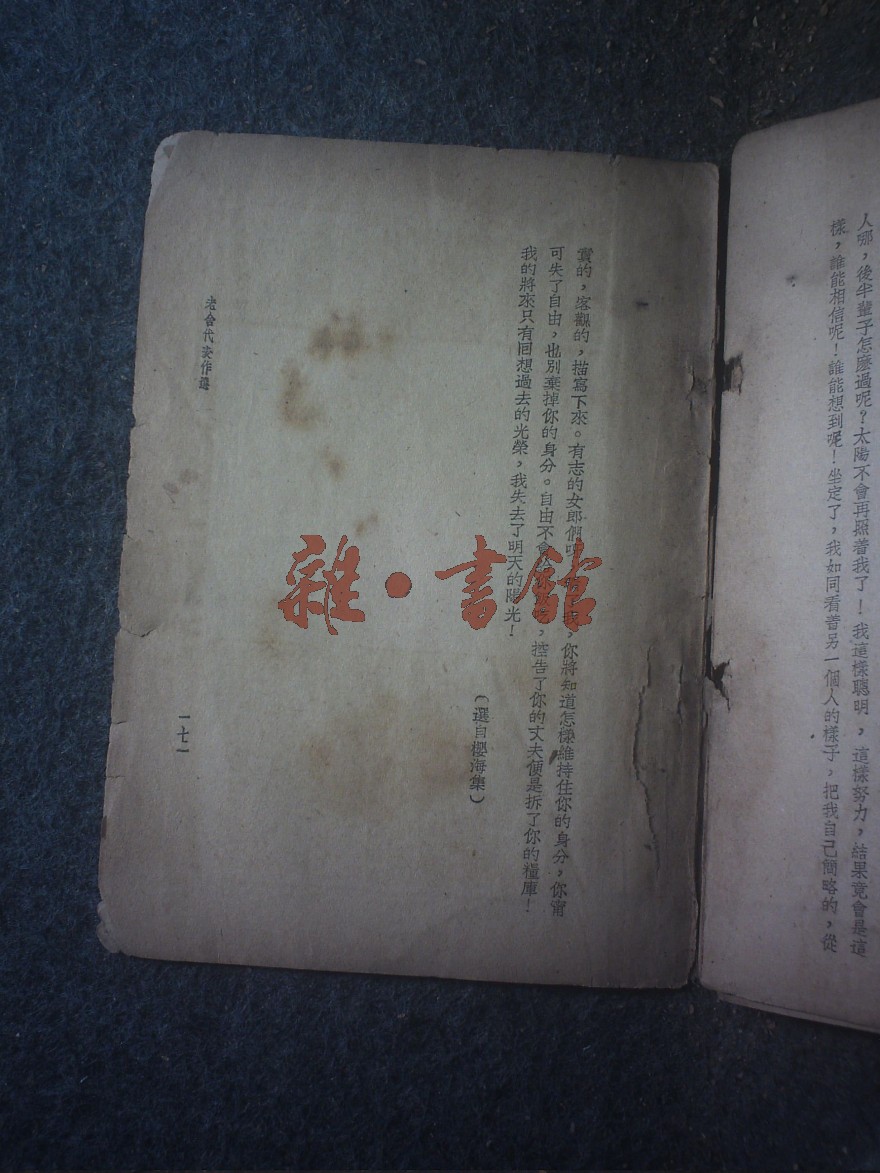 人哪，後半輩子怎麼過呢？太陽不會再照着我了！我這樣聰明，這樣努力，結果竟會是這
樣，誰能相信呢！誰能想到呢！坐定了，我如同看着另一個人的樣子，把我自己簡略的，從
實的，客觀的，描寫下來。有志的女郎們呀，我，你將知道怎樣維持住你的身分，你甯
可失了自由，也別棄掉你的身分。自由不會，控告了你的丈夫便是拆了你的糧庫！
我的將來只有回想過去的光榮，我失去了明天的陽光！
（選自櫻海集）
老舍代表作選
一七一
雜·書館